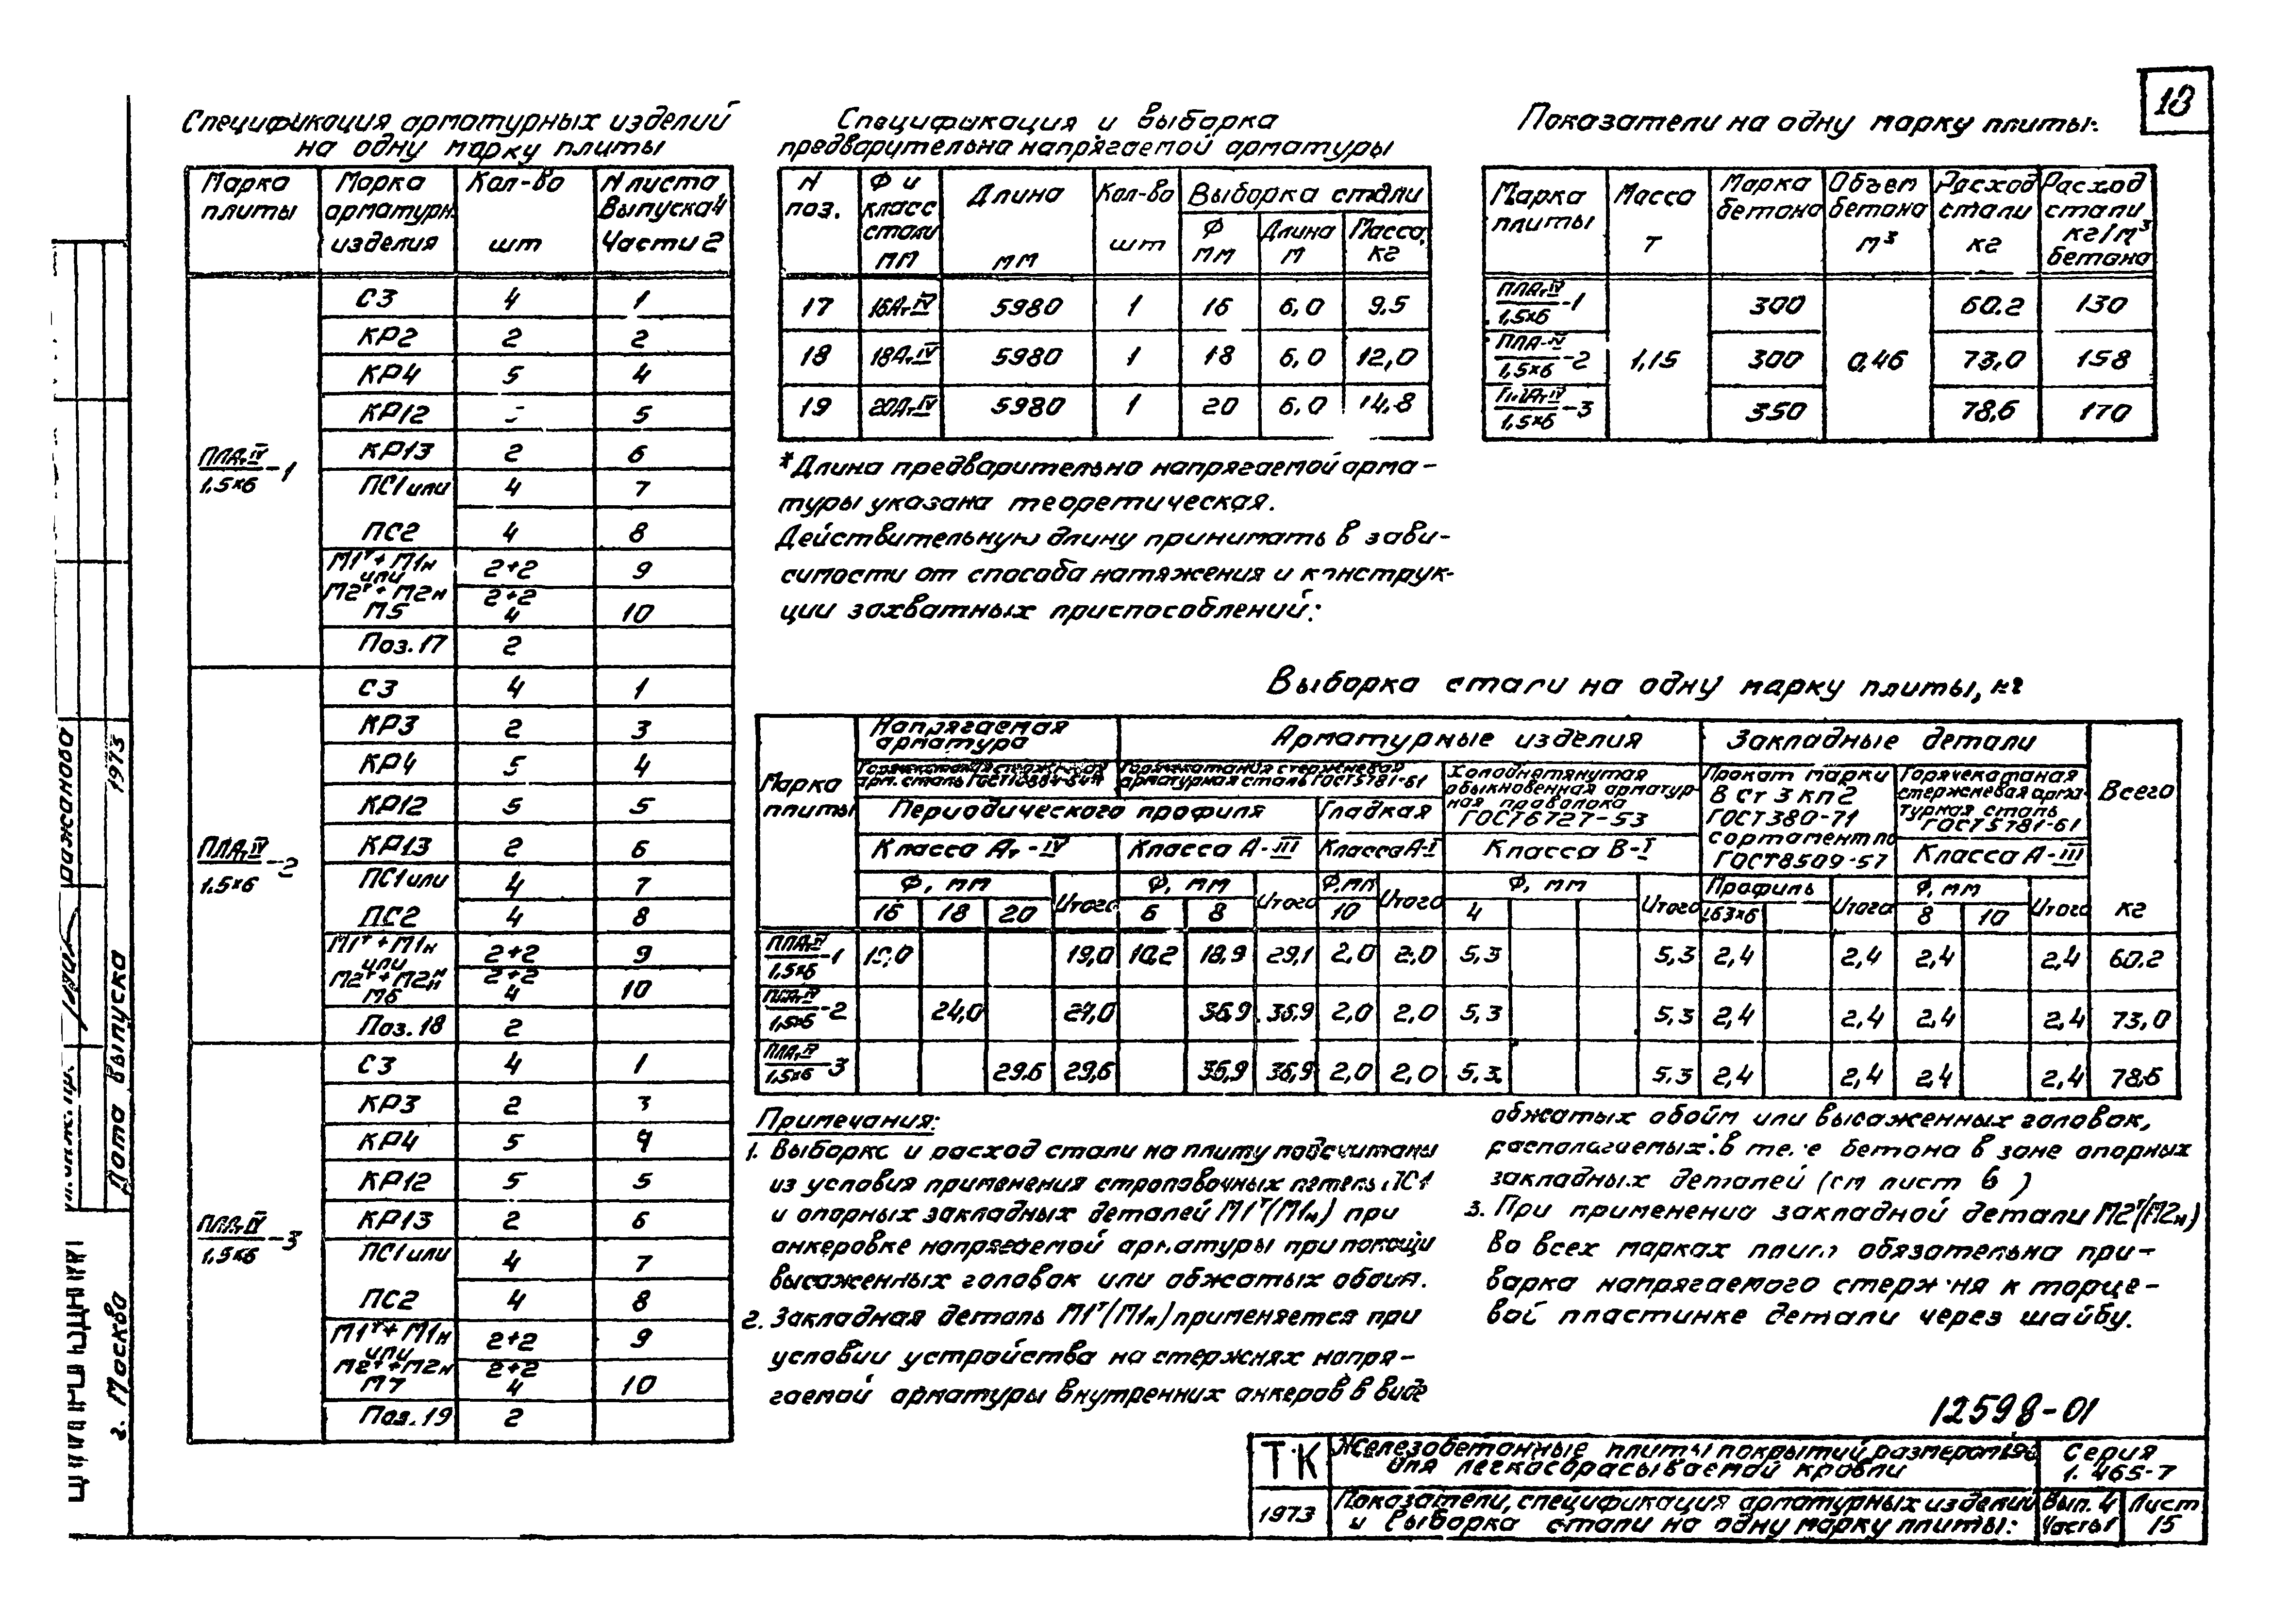 13
Спецификация арматурных изделий
на одну марку плиты
Марка плиты | Марка арматурн. изделия | Кол-во шт | N листа Выпуска 4 Части 2
ПЛАтIV/1,5×6-1
С3 | 4 | 1
КР2 | 2 | 2
КР4 | 5 | 4
КР12 | 5
КР13 | 2 | 6
ПС1 или | 4 | 7
ПС2 | 4 | 8
М1т+М1н | 2+2 | 9
или
М2т+М2н | 2+2
М5 | 4 | 10
Поз.17 | 2
ПЛАтIV/1,5×6-2
С3 | 4 | 1
КР3 | 2 | 3
КР4 | 5 | 4
КР12 | 5 | 5
КР13 | 2 | 6
ПС1 или | 4 | 7
ПС2 | 4 | 8
М1т+М1н | 2+2 | 9
или
М2т+М2н | 2+2
М6 | 4 | 10
Поз.18 | 2
ПЛАтIV/1,5×6-3
С3 | 4 | 1
КР3 | 2 | 3
КР4 | 5 | 4
КР12 | 5 | 5
КР13 | 2 | 6
ПС1 или | 4 | 7
ПС2 | 4 | 8
М1т+М1н | 2+2 | 9
или
М2т+М2н | 2+2
М7 | 4 | 10
Поз.19 | 2
Спецификация и выборка
предварительна напрягаемой арматуры
N поз. | Ф и класс стали мм | Длина мм | Кол-во шт | Выборка стали
Ф мм | Длина м | Масса, кг
17 | 16АтIV | 5980 | 1 | 16 | 6,0 | 9.5
18 | 18АтIV | 5980 | 1 | 18 | 6,0 | 12,0
19 | 20АтIV | 5980 | 1 | 20 | 6,0 | 14,8
*Длина предварительно напрягаемой арма-
туры указана теоретическая.
Действительную длину принимать в зави-
симости от способа натяжения и конструк-
ции захватных приспособлений:
Показатели на одну марку плиты:
Марка плиты | Масса Т | Марка бетона | Объем бетона м³ | Расход стали кг | Расход стали кг/м³ бетона
ПЛАтIV/1,5×6-1 | 1,15 | 300 | 0,46 | 60.2 | 130
ПЛА-IV/1,5×6-2 | 300 | 73,0 | 158
ПЛАтIV/1,5×6-3 | 350 | 78,6 | 170
Выборка стали на одну марку плиты, кг
Марка плиты | Напрягаемая арматура | Арматурные изделия | Закладные детали | Всего кг
Горячекатаная стержневая арм. сталь
Горячекатаная стержневая арматурная сталь ГОСТ5781-61
Холоднотянутая обыкновенная арматурная проволока ГОСТ6727-53
Прокат марки В Ст 3 кп2 ГОСТ380-71 сортамент по ГОСТ8509-57
Горячекатаная стержневая арматурная сталь ГОСТ5781-61
Периодического профиля | Гладкая
Класса Ат-IV | Класса А-III | Класса А-I | Класса В-I | Класса А-III
Ф, мм | Итого | Ф, мм | Итого | Ф,мм | Итого | Ф, мм | Итого | Профиль | Итого | Ф, мм | Итого
16 | 18 | 20 | 6 | 8 | 10 | 4 | L63×6 | 8 | 10
ПЛАтIV/1,5×6-1 | 19,0 | 19,0 | 10,2 | 18,9 | 29,1 | 2,0 | 2,0 | 5,3 | 5,3 | 2,4 | 2,4 | 2,4 | 2,4 | 60.2
ПЛАтIV/1,5×6-2 | 24,0 | 24,0 | 36,9 | 36,9 | 2,0 | 2,0 | 5,3 | 5,3 | 2,4 | 2,4 | 2,4 | 2,4 | 73,0
ПЛАтIV/1,5×6-3 | 29.6 | 29,6 | 36,9 | 36,9 | 2,0 | 2,0 | 5,3 | 5,3 | 2,4 | 2,4 | 2,4 | 2,4 | 78,6
Примечания:
1. Выборка и расход стали на плиту подсчитаны
из условия применения строповочных петель ПС1
и опорных закладных деталей М1т(М1н) при
анкеровке напрягаемой арматуры при помощи
высаженных головок или обжатых обойм.
2. Закладная деталь М1т(М1н) применяется при
условии устройства на стержнях напря-
гаемой арматуры внутренних анкеров в виде
обжатых обойм или высаженных головок,
располагаемых в теле бетона в зоне опорных
закладных деталей (см лист 6)
3. При применении закладной детали М2т(М2н)
во всех марках плит обязательна при-
варка напрягаемого стержня к торце-
вой пластинке детали через шайбу.
12598-01
ТК
1973
Железобетонные плиты покрытий размером 1,5×6
для легкосбрасываемой кровли
Серия
1.465-7
Показатели, спецификация арматурных изделий
и выборка стали на одну марку плиты:
Вып. 4
Часть 1
Лист
15
Дата выпуска 1973
г. Москва